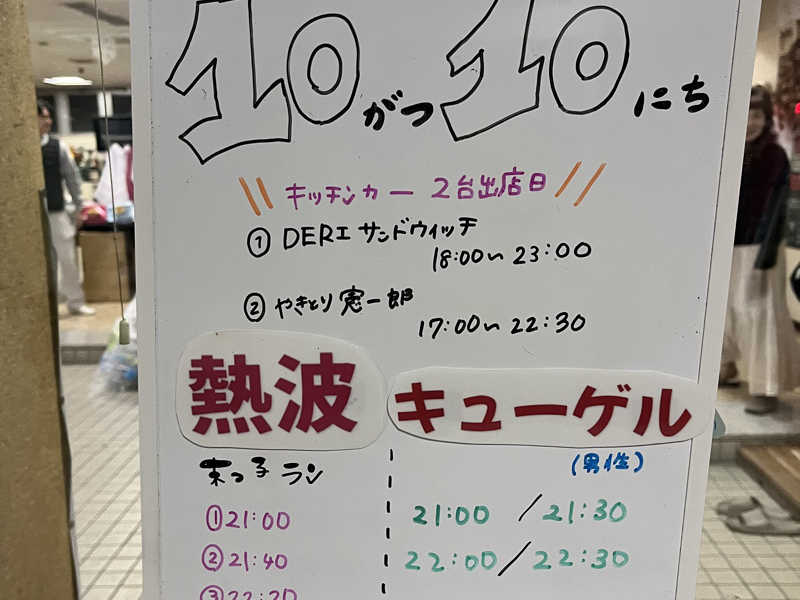 10がつ10にち
\\ キッチンカー 2台出店日 //
① DERI サンドウィッチ
18:00〜23:00
② やきとり 憲一郎
17:00〜22:30
熱波
キューゲル
末っ子ラン
(男性)
①21:00
21:00 / 21:30
②21:40
22:00 / 22:30
③22:20